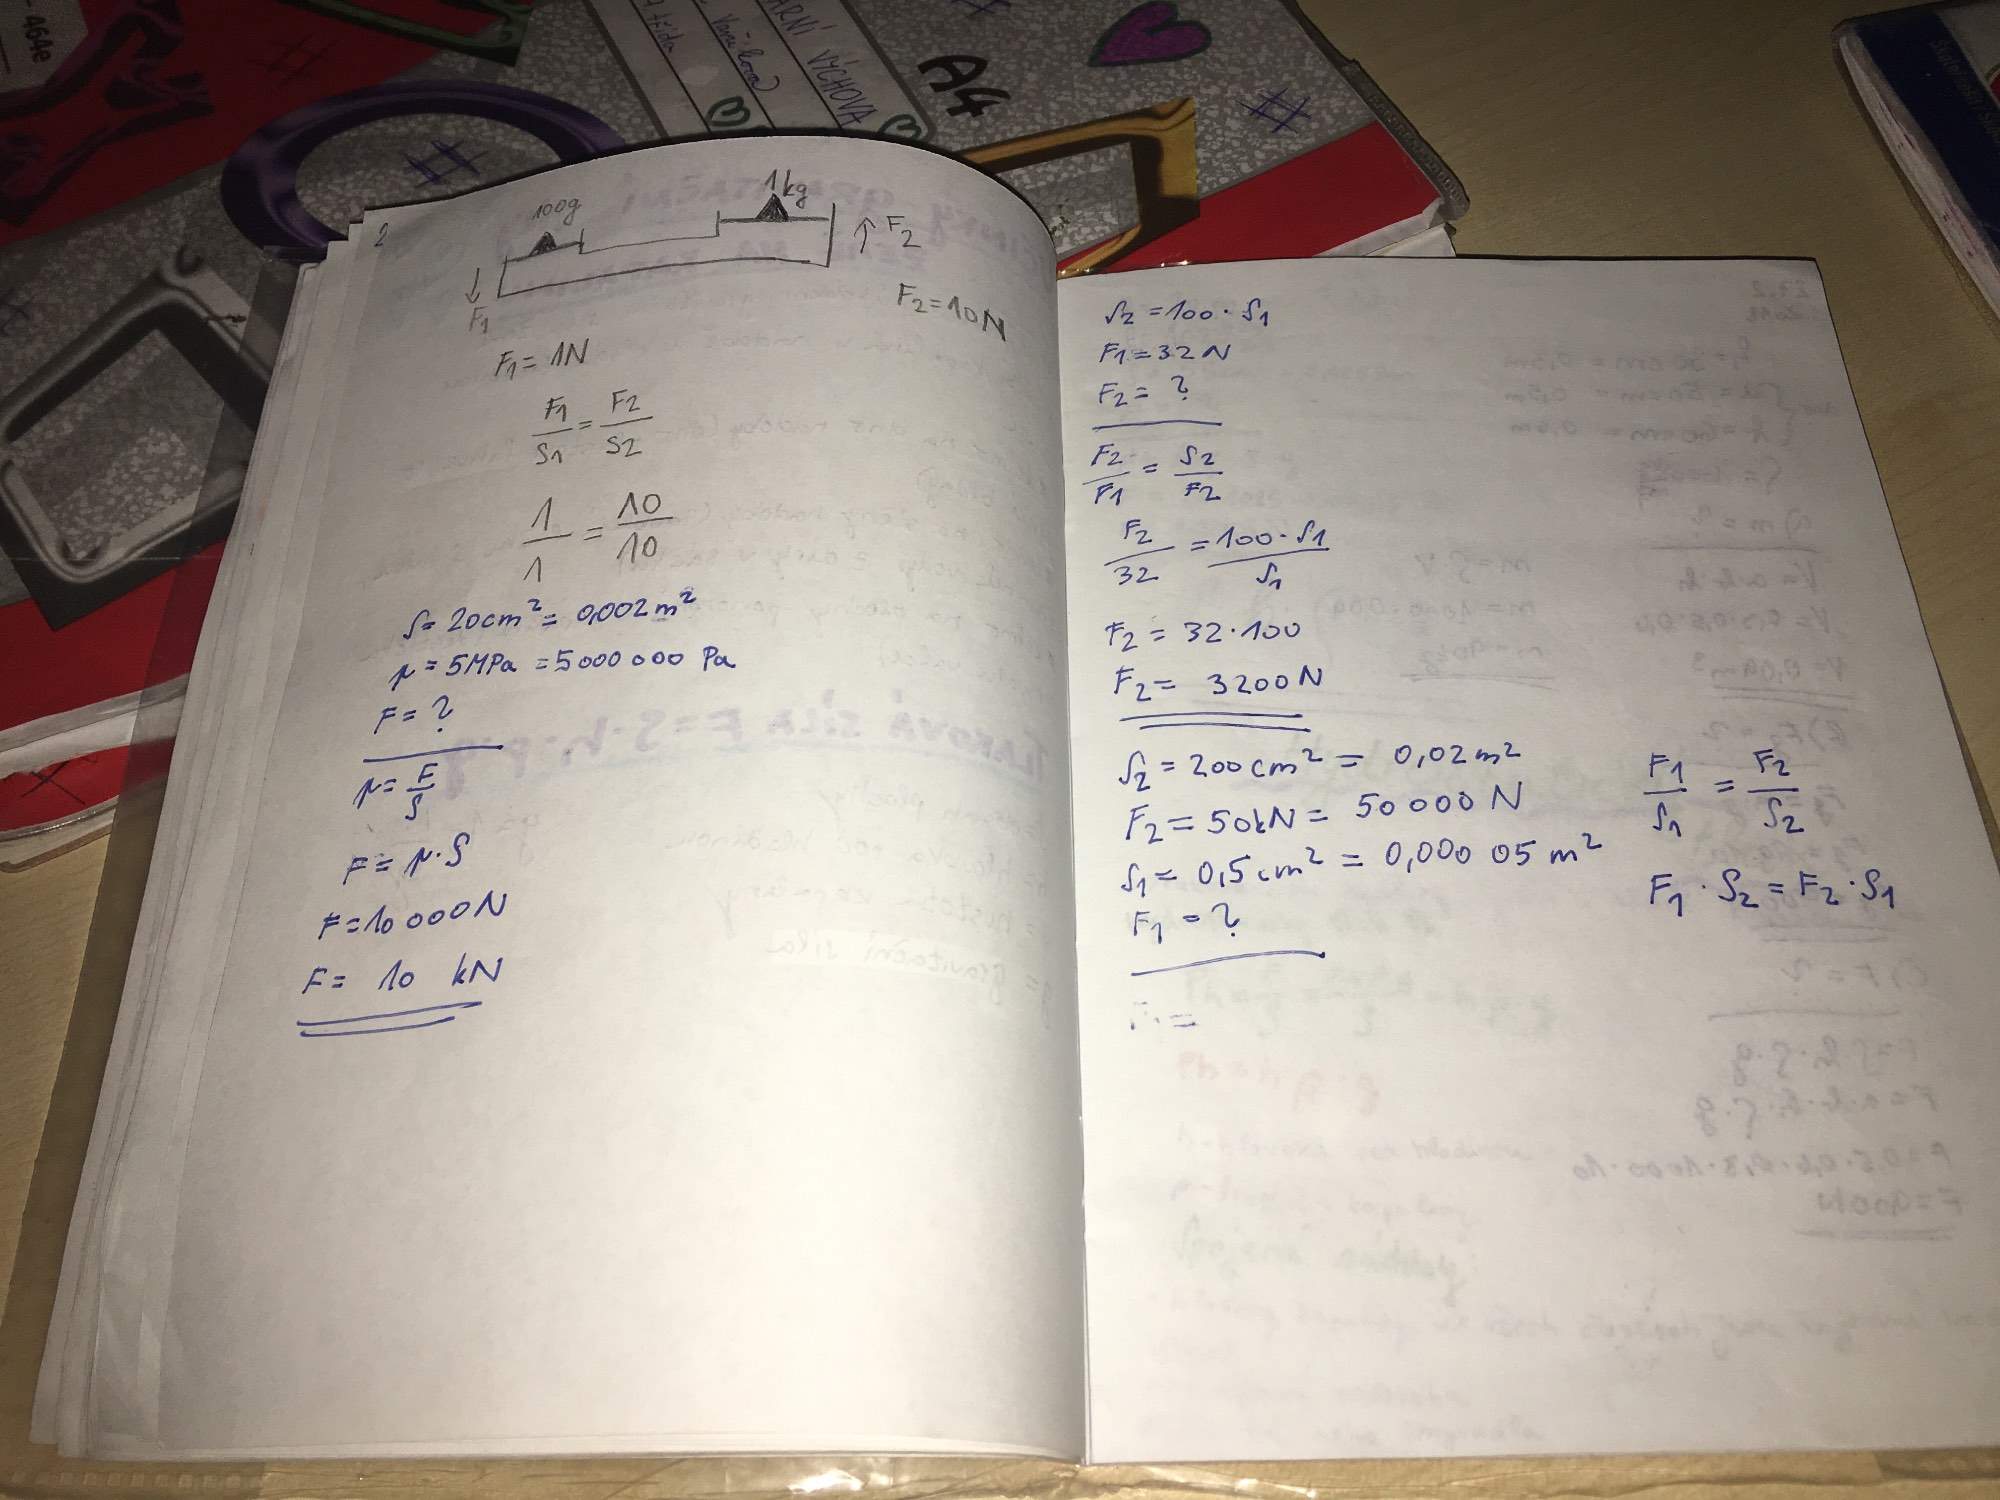 - 464e
A4
ARNÍ VÝCHOVA
třída
2
100g
1kg
F1
F2
F2 = 10N
F1 = 1N
F1/S1 = F2/S2
1/1 = 10/10
S = 20cm² = 0,002 m²
p = 5MPa = 5000 000 Pa
F = ?
p = F/S
F = p · S
F = 10 000N
F = 10 kN
S2 = 100 · S1
F1 = 32 N
F2 = ?
F2/F1 = S2/F2
F2/32 = 100 · S1/S1
F2 = 32 · 100
F2 = 3200 N
S2 = 200 cm² = 0,02 m²
F2 = 50kN = 50 000 N
S1 = 0,5 cm² = 0,000 05 m²
F1 = ?
F1/S1 = F2/S2
F1 · S2 = F2 · S1